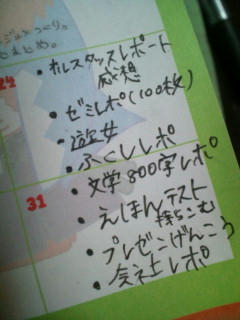 24
・ホルスタッスレポート
感想
・ゼミレポ(100枚)
・遊女
・ふくしレポ
31
・文学800字レポ
・えほんテスト
持ちこむ
・プレゼンげんこう
・会社レポ